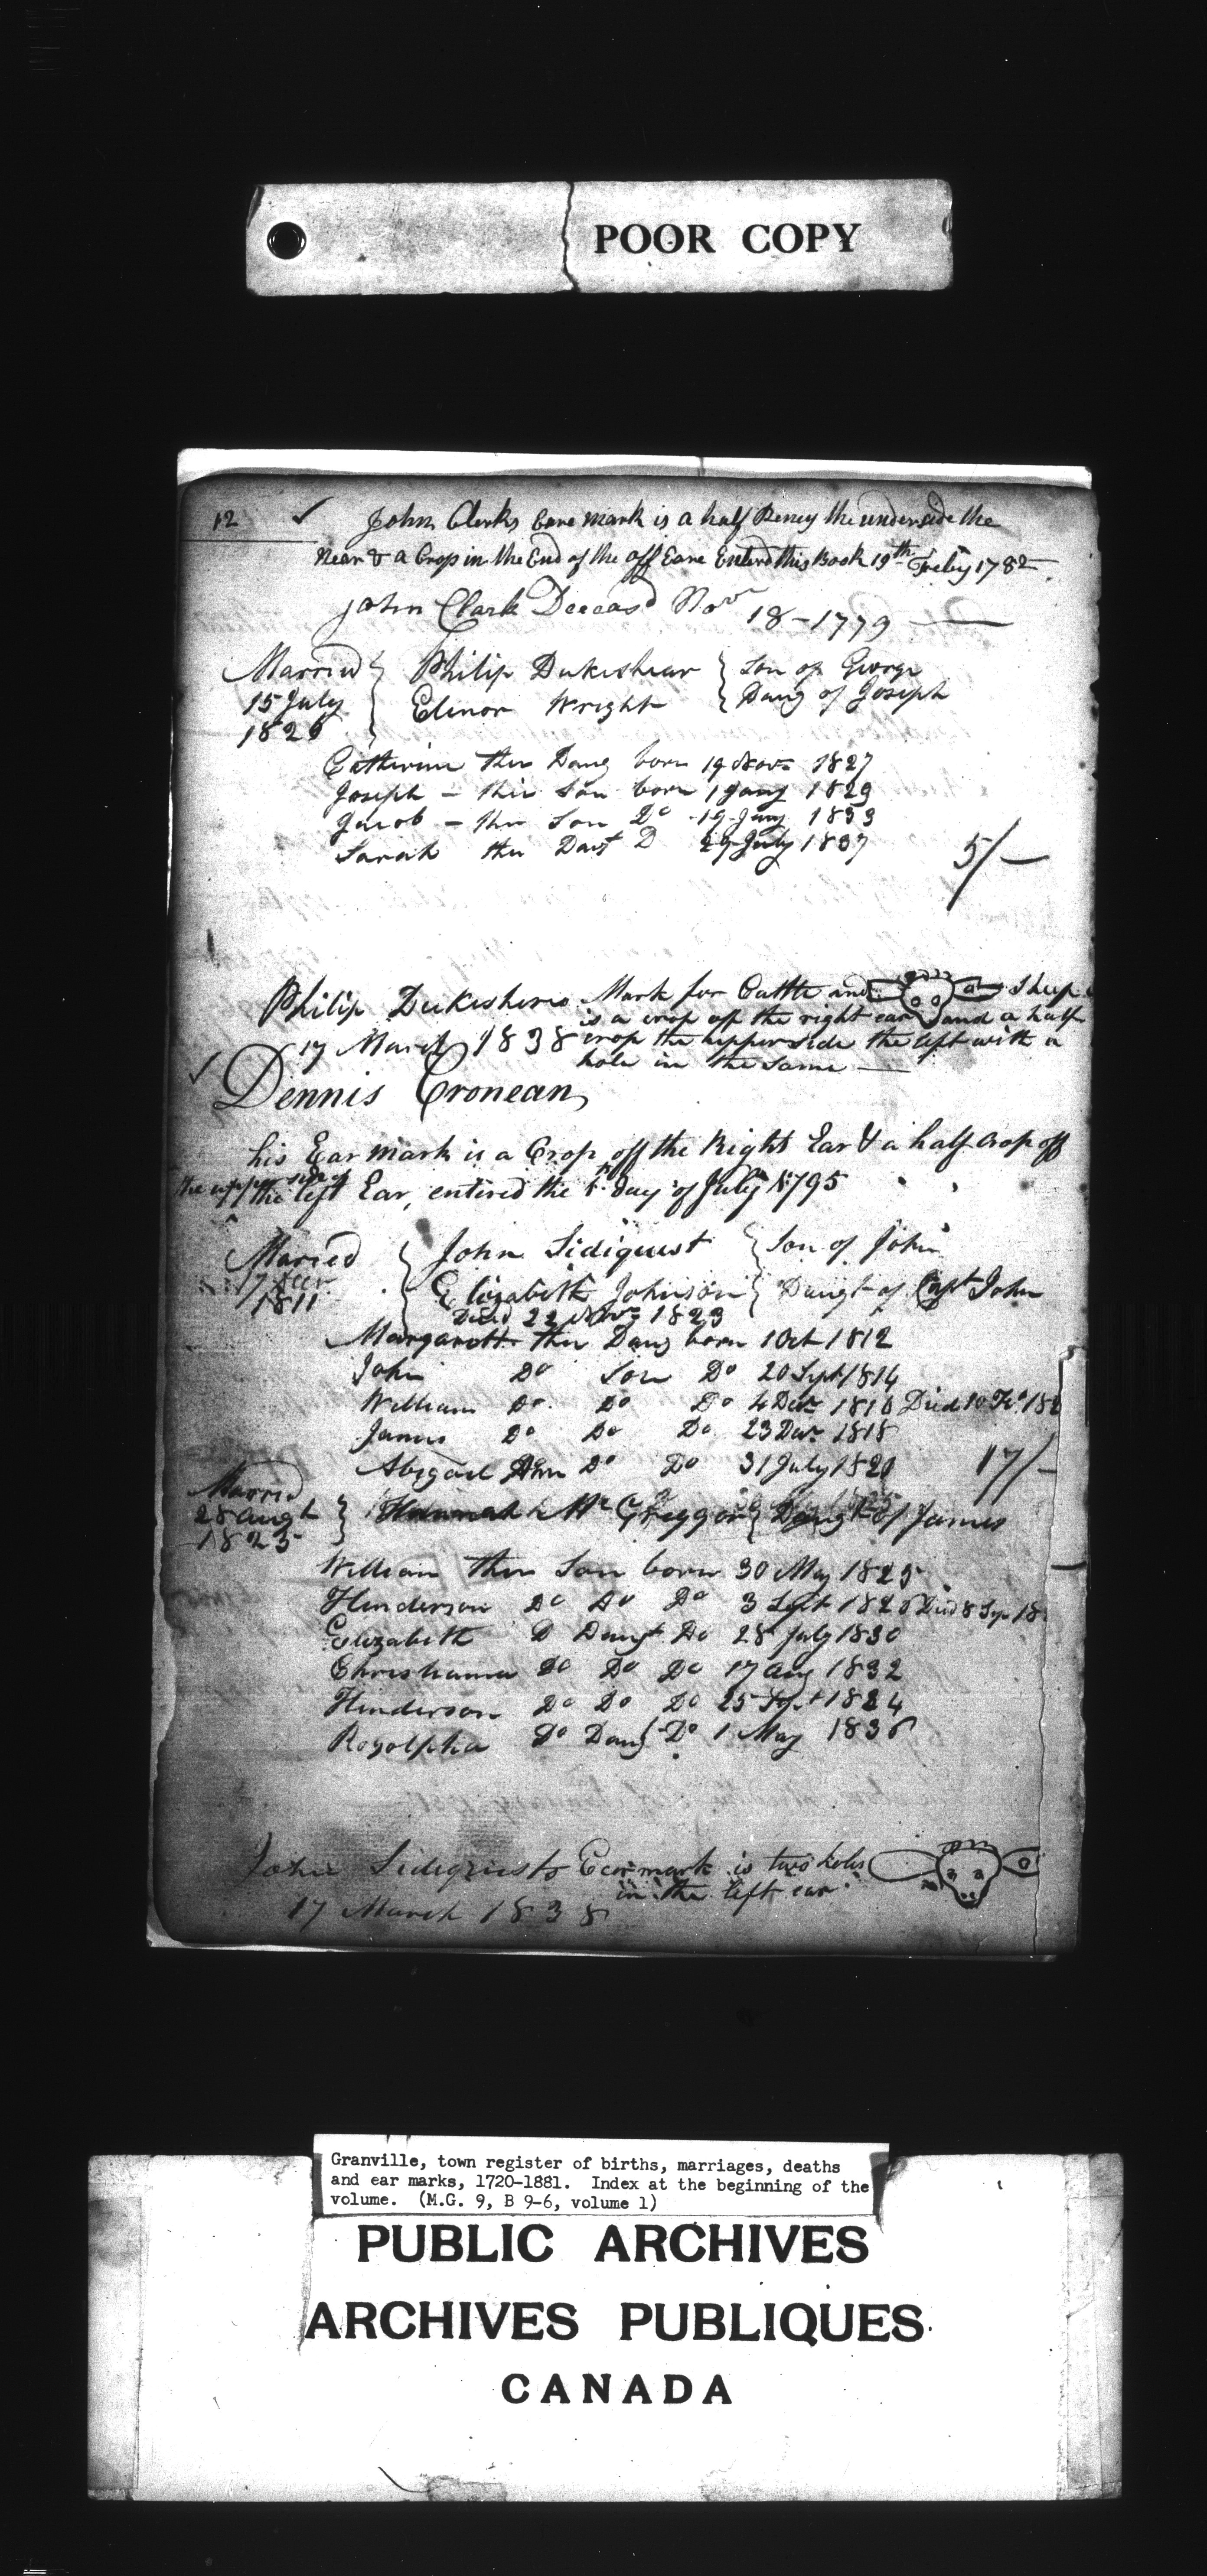 POOR COPY
12 ✓ John Clerks Eare mark is a half Peney the underside the
Near & a Crop in the End of the off Eare Enterd this Book 19th Feby 1782
John Clark Deceasd Novr 18 - 1779
Married Philip Dukeshear Son of George
15 July Elinor Wright Daug of Joseph
1826
Catherine ther Daug born 19 Novr 1827
Joseph - their Son born 1 Jany 1829
Jacob - ther Son Do 19 Jany 1833
Sarah ther Daut D 29 July 1837
5/-
Philip Dukeshers Mark for Cattle and Sheep
is a crop off the right ear and a half
17 March 1838 crop the upperside the left with a
hole in the same
✓ Dennis Cronean
his Ear mark is a Crop off the Right Ear & a half Crop off
the upper side of
the left Ear, entered the day of July 1795
Married John Sidiquist Son of John
17 Decr Elizabeth Johnson Daugt of Capt John
1811 Died 22 Novr 1823
Margarett ther Daug born 1 Oct 1812
John Do Son Do 20 Sept 1814
William Do Do Do 4 Decr 1816 Died 10
James Do Do Do 23 Decr 1818
Abigail Ann Do Do 31 July 1820
17/-
Married
28 Augt Hannah Mc Greggor Daugt of James
1823
William ther Son born 30 May 1825
Henderson Do Do Do 3 Sept 1826 Died 8 Sep 18
Elizabeth D Daugt Do 28 July 1830
Christianna Do Do Do 17 Aug 1832
Henderson Do Do Do 25 Sept 1824
Rogolpha Do Daug Do 1 May 1836
John Sidequists Ear mark is two holes
in the left ear
17 March 1838
Granville, town register of births, marriages, deaths
and ear marks, 1720-1881. Index at the beginning of the
volume. (M.G. 9, B 9-6, volume 1)
PUBLIC ARCHIVES
ARCHIVES PUBLIQUES
CANADA